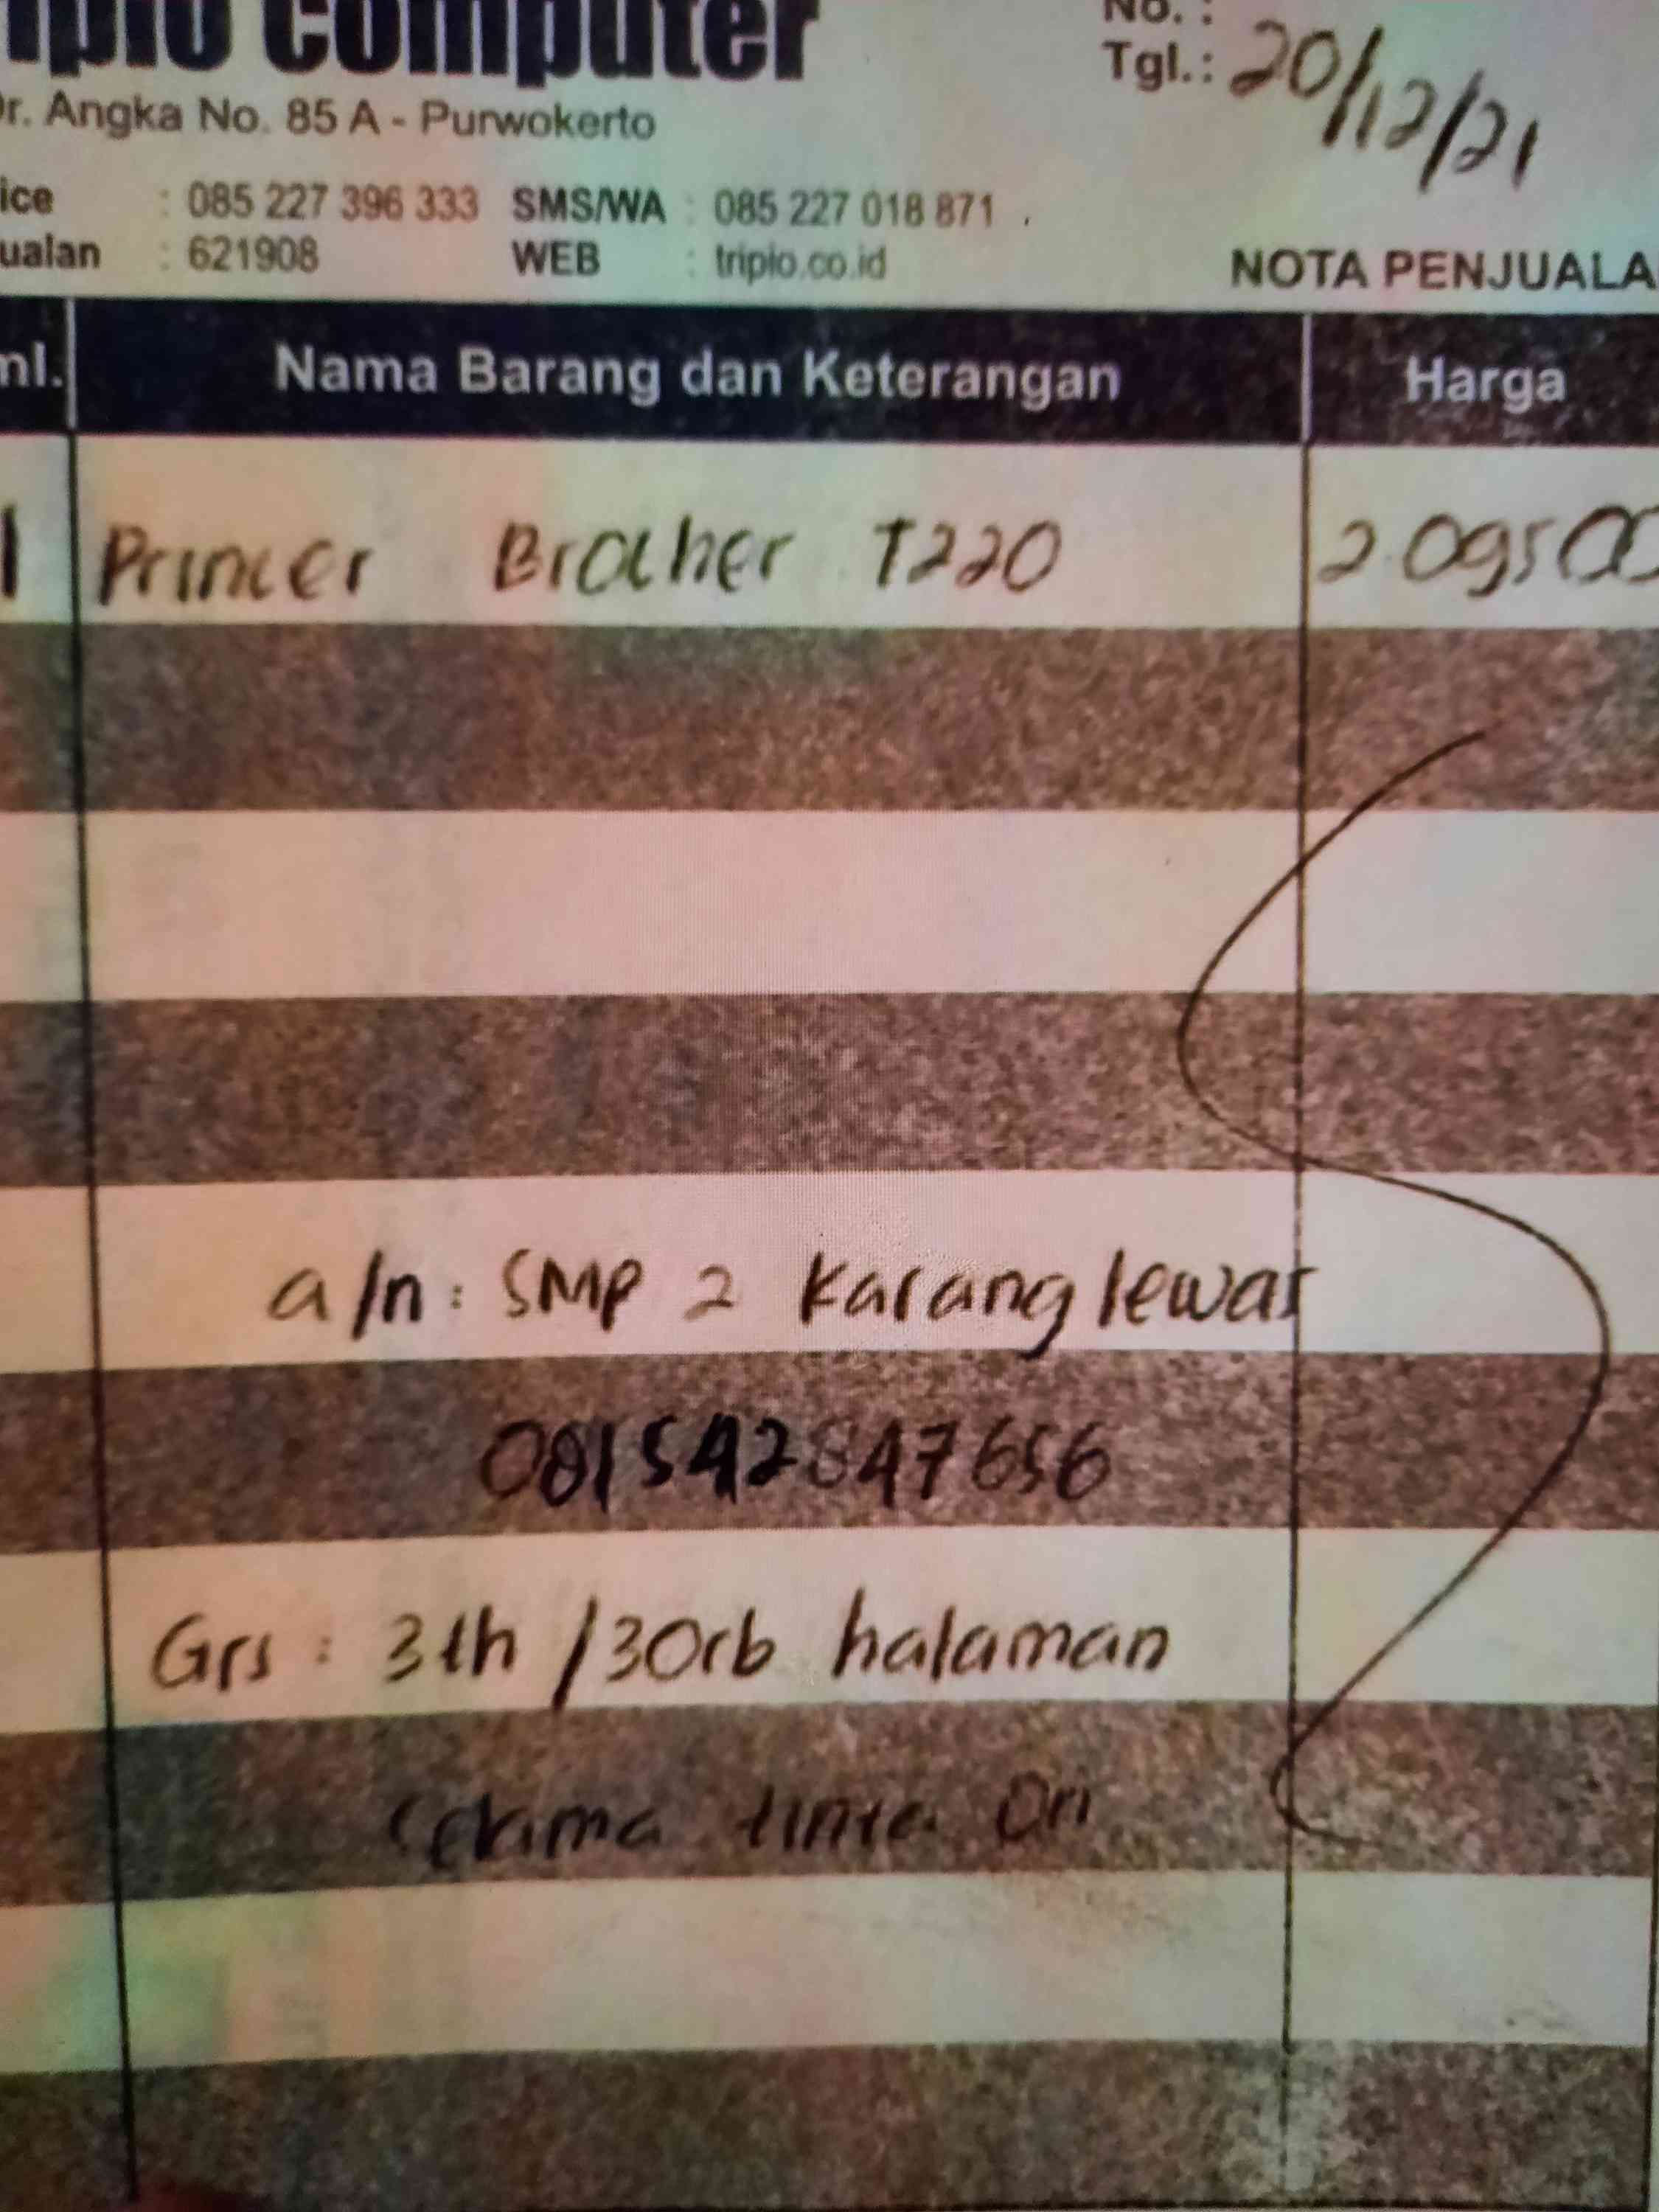 iplo computer
No. :
Tgl.: 20/12/21
Dr. Angka No. 85 A - Purwokerto
ice : 085 227 396 333 SMS/WA : 085 227 018 871
ualan : 621908 WEB : triplo.co.id
NOTA PENJUALA
ml. Nama Barang dan Keterangan Harga
1 Printer Brother T220 2.09500
a/n : SMP 2 Karanglewas
081542847656
Grs : 3th /30rb halaman
selama tinta Ori